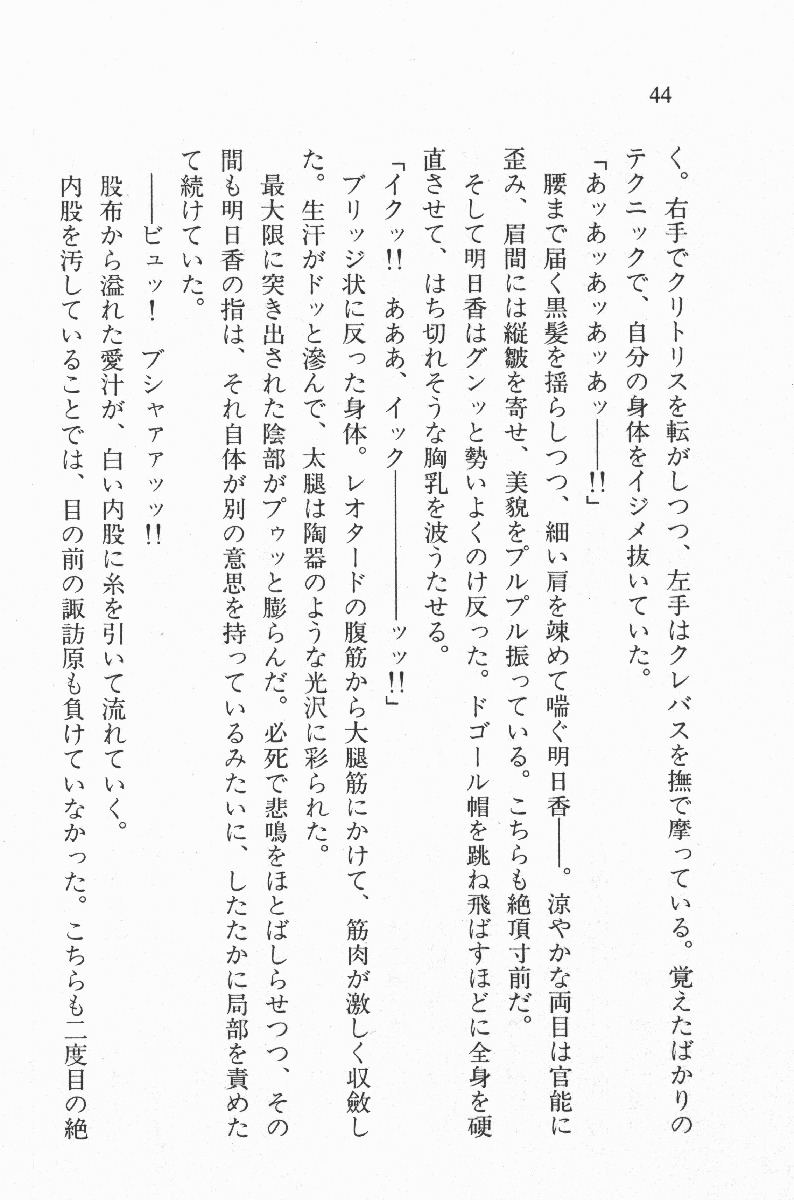 44
く。右手でクリトリスを転がしつつ、左手はクレバスを撫で摩っている。覚えたばかりの
テクニックで、自分の身体をイジメ抜いていた。
「あッあッあッあッあッ――!!」
腰まで届く黒髪を揺らしつつ、細い肩を竦めて喘ぐ明日香――。涼やかな両目は官能に
歪み、眉間には縦皺を寄せ、美貌をプルプル振っている。こちらも絶頂寸前だ。
そして明日香はグンッと勢いよくのけ反った。ドゴール帽を跳ね飛ばすほどに全身を硬
直させて、はち切れそうな胸乳を波うたせる。
「イクッ!!　あああ、イック――――――ッッ!!」
ブリッジ状に反った身体。レオタードの腹筋から大腿筋にかけて、筋肉が激しく収斂し
た。生汗がドッと滲んで、太腿は陶器のような光沢に彩られた。
最大限に突き出された陰部がプゥッと膨らんだ。必死で悲鳴をほとばしらせつつ、その
間も明日香の指は、それ自体が別の意思を持っているみたいに、したたかに局部を責めた
て続けていた。
――ビュッ！　ブシャァァッッ!!
股布から溢れた愛汁が、白い内股に糸を引いて流れていく。
内股を汚していることでは、目の前の諏訪原も負けていなかった。こちらも二度目の絶